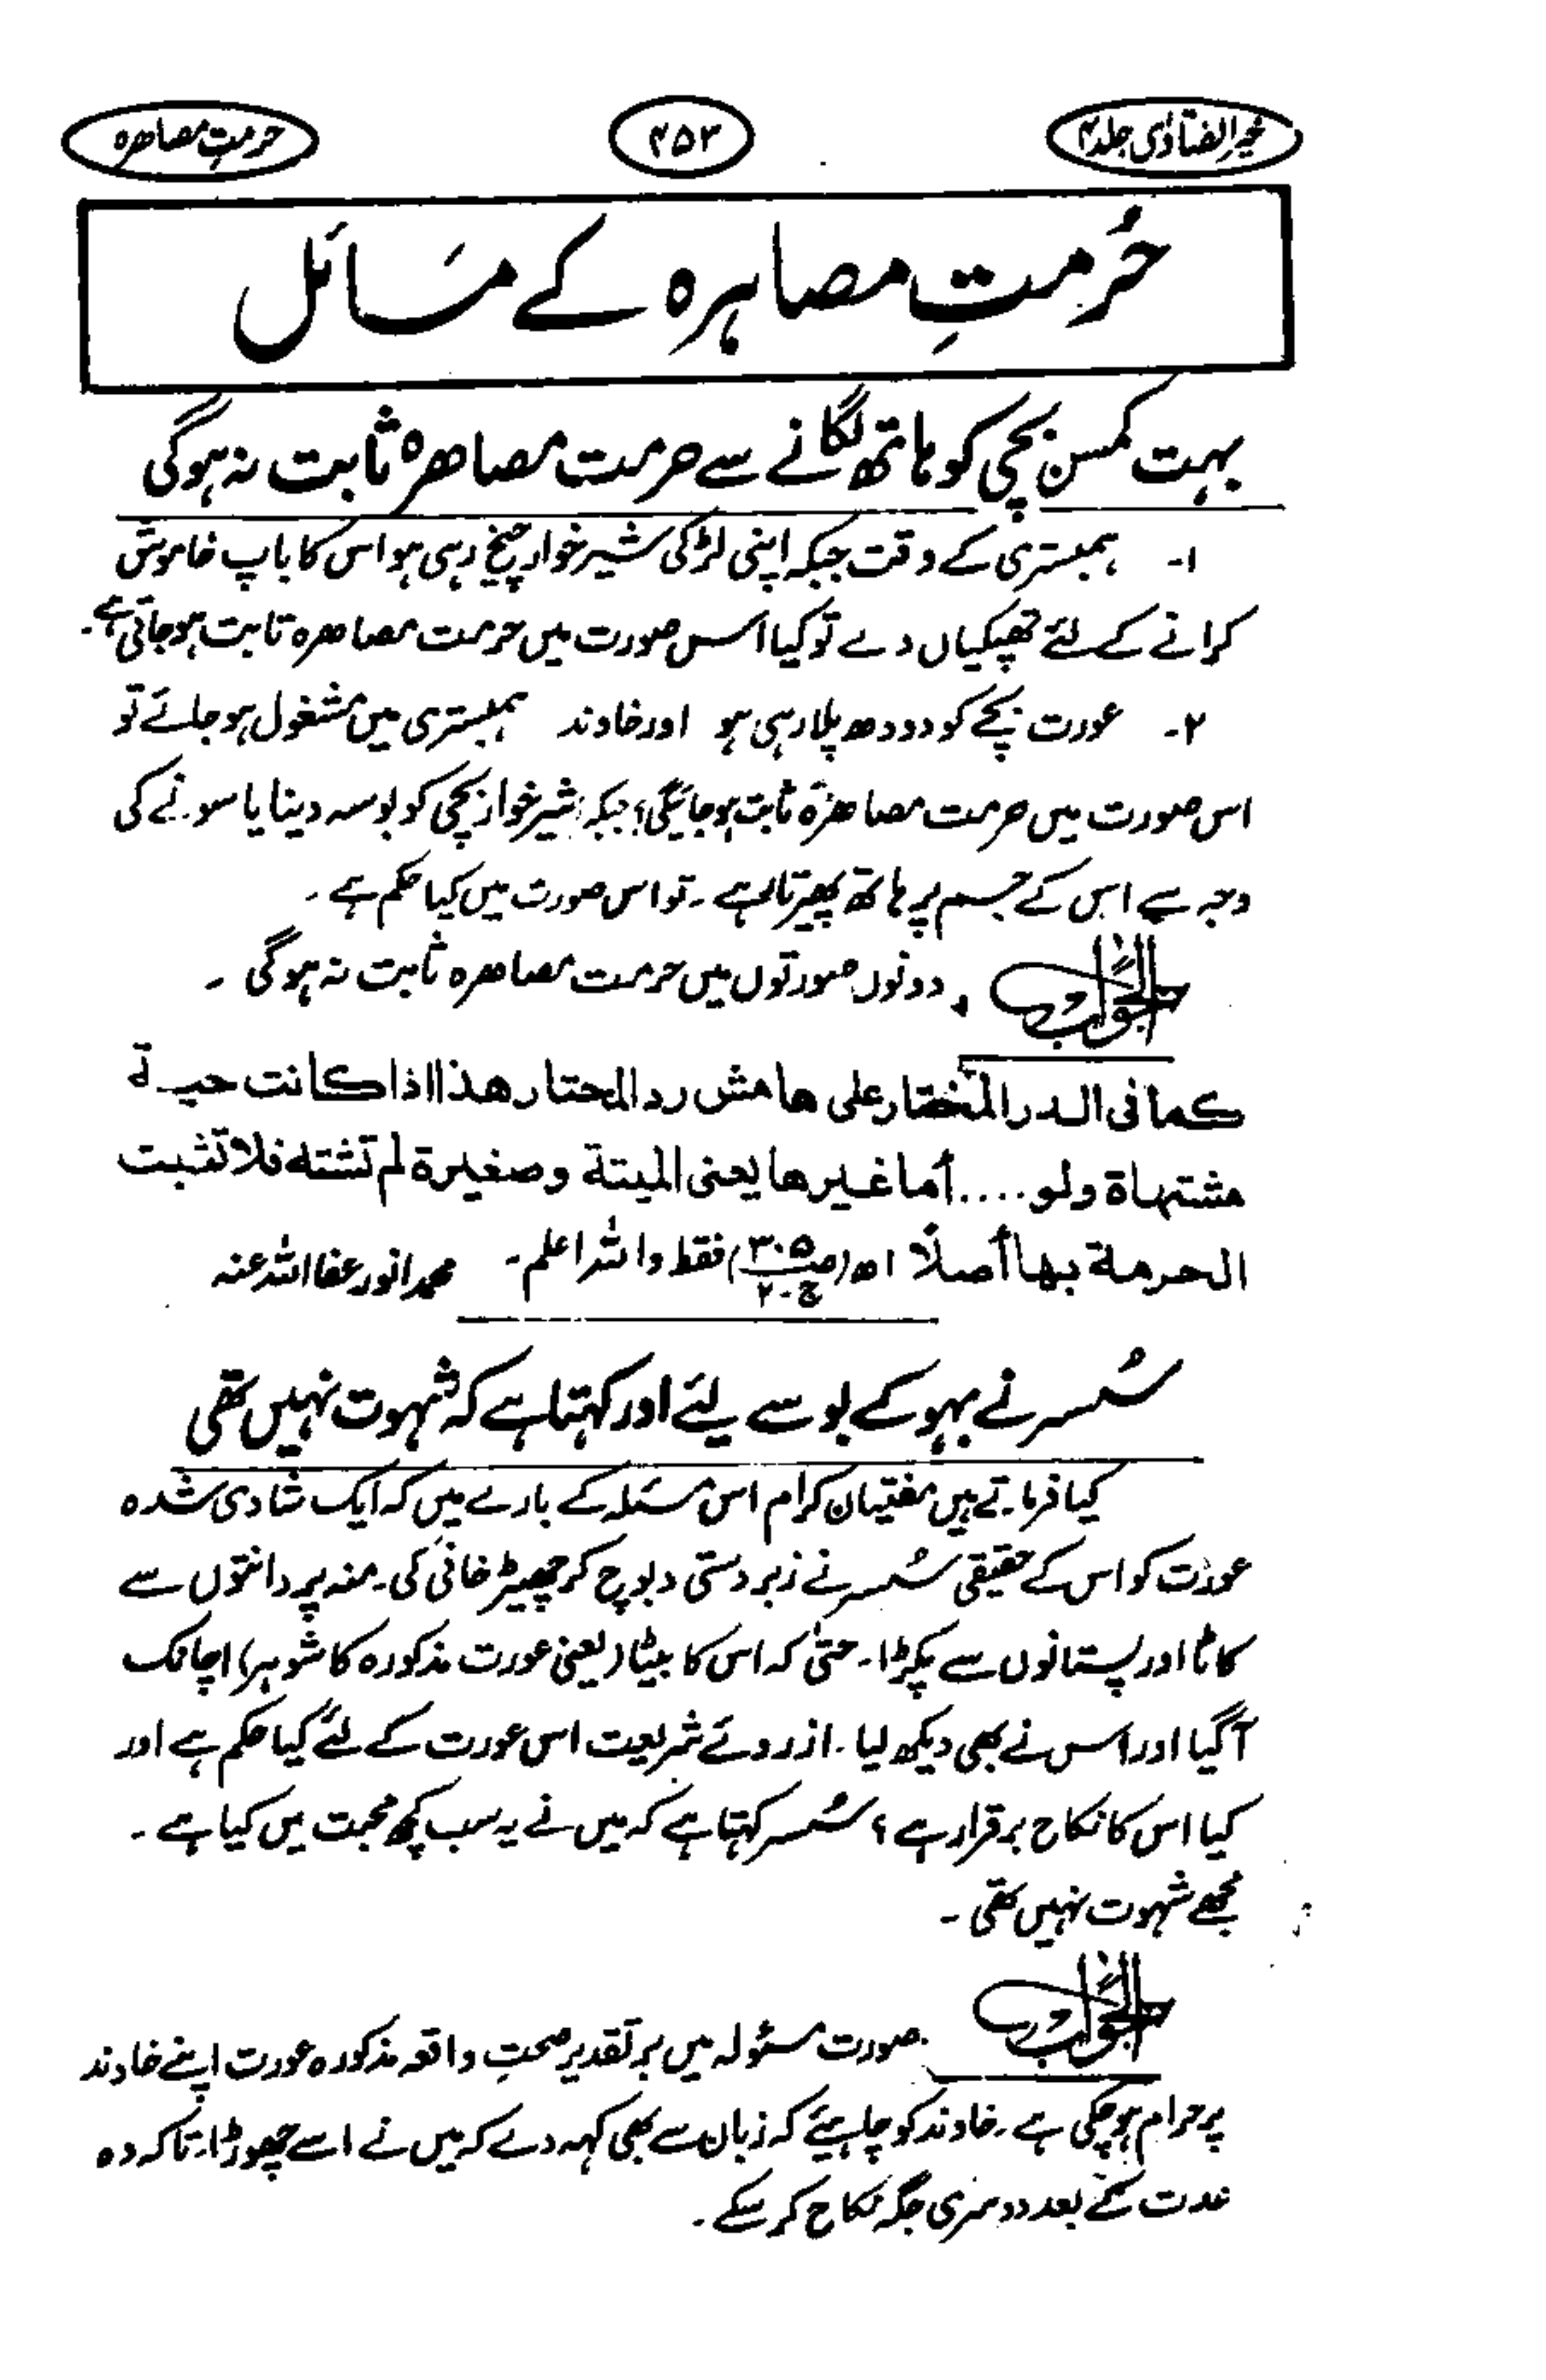 خیر الفتاوٰی جلد ۴
۴۵۳
حرمتِ مصاھرہ
حُرمتِ مصاہرہ کے مسَائل
بہت کمسن بچی کو ہاتھ لگانے سے حرمت مصاھرہ ثابت نہ ہوگی
۱۔ ہمبستری کے وقت جبکہ اپنی لڑکی شیر خوار چیخ رہی ہو اس کا باپ خاموش
کرانے کے لئے تھپکیاں دے تو کیا اس صورت میں حرمت مصاھرہ ثابت ہو جاتی ہے۔
۲۔ عورت بچے کو دودھ پلا رہی ہو اور خاوند ہمبستری میں مشغول ہو جائے تو
اس صورت میں حرمت مصاھرۃ ثابت ہو جائیگی؟ جبکہ شیر خوار بچی کو بوسہ دینا یا سونے کی
وجہ سے اس کے جسم پر ہاتھ پھیرتا ہے۔ تو اس صورت میں کیا حکم ہے۔
الجواب دونوں صورتوں میں حرمت مصاھرہ ثابت نہ ہوگی۔
كما فى الدر المختار على هامش رد المحتار هذا اذا كانت حية
مشتهاة ولو ..... أما غيرها يعنى الميتة وصغيرة لم تشته فلا تثبت
الحرمة بها أصلاً اھ (ص۳۰۵ ج۲) فقط واللہ اعلم۔ محمد انور عفا اللہ عنہ
سُسر نے بہو کے بوسے لئے اور کہتا ہے کہ شہوت نہیں تھی
کیا فرماتے ہیں مفتیان کرام اس مسئلہ کے بارے میں کہ ایک شادی شدہ
عورت کو اس کے حقیقی سُسر نے زبردستی دبوچ کر چھیڑ خانی کی۔ منہ پر دانتوں سے
کاٹا اور پستانوں سے پکڑا۔ حتیٰ کہ اس کا بیٹا (یعنی عورت مذکورہ کا شوہر) اچانک
آگیا اور اس نے بھی دیکھ لیا۔ از روئے شریعت اس عورت کے لئے کیا حکم ہے اور
کیا اس کا نکاح برقرار ہے؟ سُسر کہتا ہے کہ میں نے یہ سب کچھ محبت میں کیا ہے۔
مجھے شہوت نہیں تھی۔
الجواب صورت مسئولہ میں بر تقدیر صحتِ واقعہ مذکورہ عورت اپنے خاوند
پر حرام ہوچکی ہے۔ خاوند کو چاہیئے کہ زبان سے بھی کہہ دے کہ میں نے اسے چھوڑا۔ تاکہ وہ
عدت کے بعد دوسری جگہ نکاح کر سکے۔